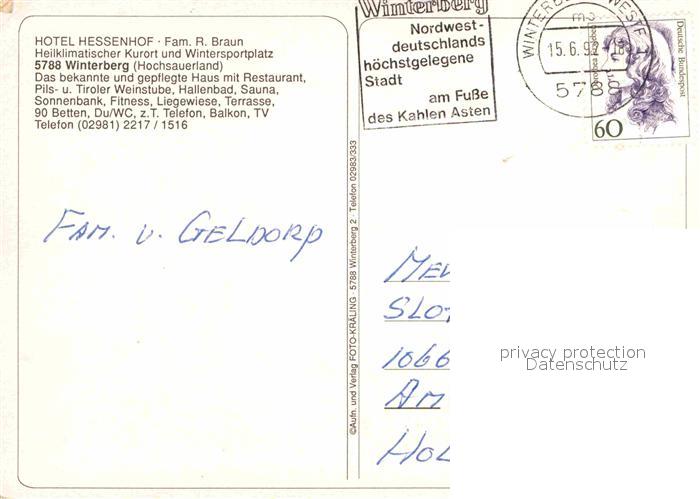 HOTEL HESSENHOF · Fam. R. Braun
Heilklimatischer Kurort und Wintersportplatz
5788 Winterberg (Hochsauerland)
Das bekannte und gepflegte Haus mit Restaurant,
Pils- u. Tiroler Weinstube, Hallenbad, Sauna,
Sonnenbank, Fitness, Liegewiese, Terrasse,
90 Betten, Du/WC, z.T. Telefon, Balkon, TV
Telefon (02981) 2217 / 1516
FAM. v. GELDORP
©Aufn. und Verlag FOTO-KRÄLING · 5788 Winterberg 2 · Telefon 02983/333
Winterberg
Nordwest-
deutschlands
höchstgelegene
Stadt
am Fuße
des Kahlen Asten
15.6.92-18
578
Deutsche Bundespost
60
SLO
1066
AM
HOL
privacy protection
Datenschutz